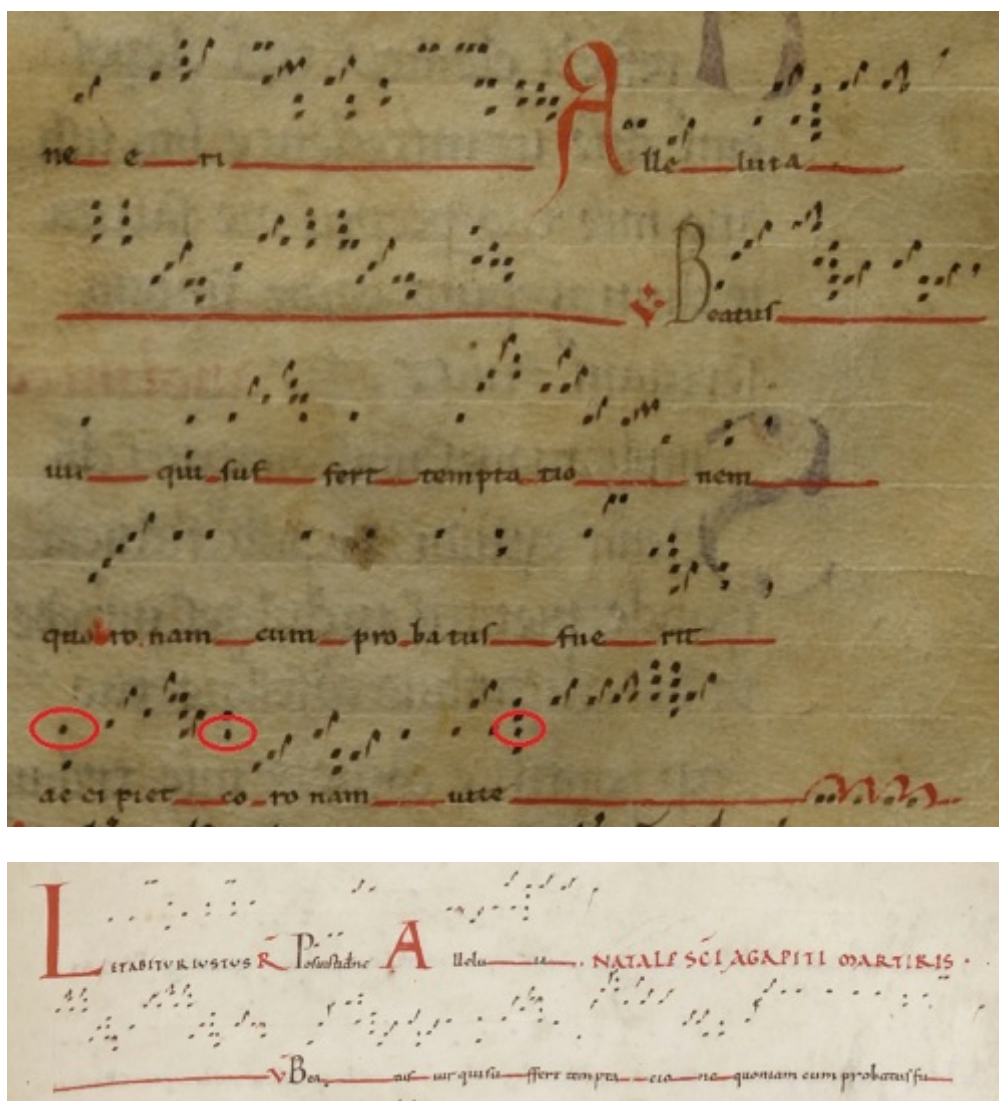 ne e ri Alle luia
℣. Beatus
uir qui suf fert tempta tio nem
quo ro nam cum pro ba tus fue rit
ac ci piet co ro nam uite
LETABITUR IUSTUS R Posuisti dne Allelu ia. NATALE SCI AGAPITI MARTIRIS.
V Bea tus uir qui su ffert tempta cio ne quoniam cum probatus fu